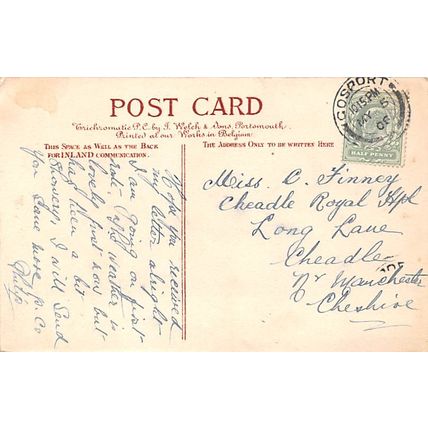 POST CARD
Trichromatic P.C. by J. Welch & Sons, Portsmouth.
Printed at our Works in Belgium.
THIS SPACE AS WELL AS THE BACK
FOR INLAND COMMUNICATION.
THE ADDRESS ONLY TO BE WRITTEN HERE
GOSPORT
10 15 PM
MY 6
06
HALF PENNY
Hope you received
my letter alright
I am going on first
rate. The weather is
lovely just now but
had been a bit
showery, I will send
you some more p. cs
Miss C. Finney
Cheadle Royal Hpl
Long Lane
Cheadle
Nr Manchester
Cheshire